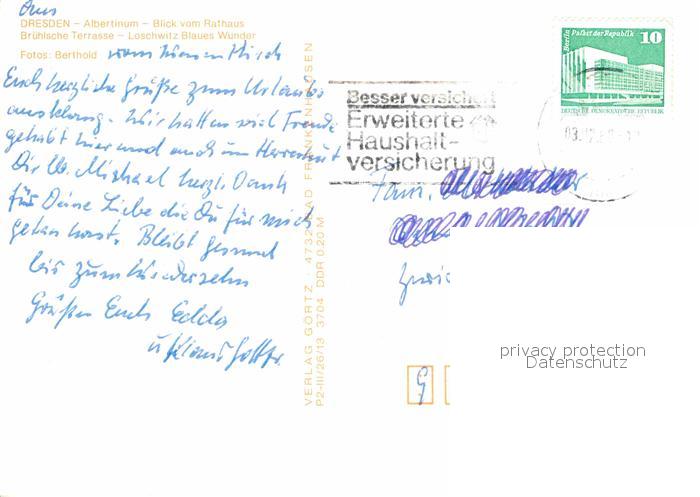 Aus
DRESDEN – Albertinum – Blick vom Rathaus
Brühlsche Terrasse – Loschwitz Blaues Wunder
Fotos: Berthold
Euch herzliche Grüße zum Urlaubs
ausklang. Wir hatten viel Freude
gehabt hier und auch in Herrnhut
Dir lb. Michael herzl. Dank
für Deine Liebe die Du für mich
getan hast. Bleibt gesund
bis zum Wiedersehn
Grüßen Euch Edda
u. Klaus
VERLAG GÖRTZ · 4732 BAD FRANKENHAUSEN
P2-III/26/13 3704 DDR 0.20 M
Besser versichert
Erweiterte
Haushalt-
versicherung
Berlin Palast der Republik 10
DEUTSCHE DEMOKRATISCHE REPUBLIK
03.
Fam.
9
privacy protection
Datenschutz